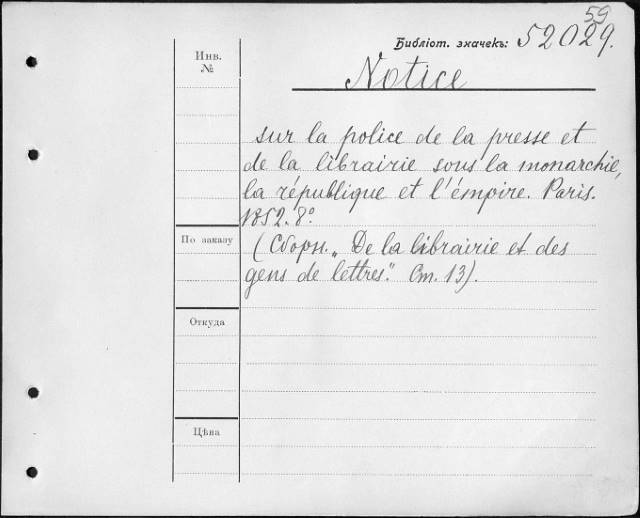 59
Библіот. значекъ: 52029.
Инв.
№
Notice
sur la police de la presse et
de la librairie sous la monarchie,
la république et l'émpire. Paris.
1852. 8º.
По заказу
(Сборн. „De la librairie et des
gens de lettres." Ст. 13).
Откуда
Цѣна